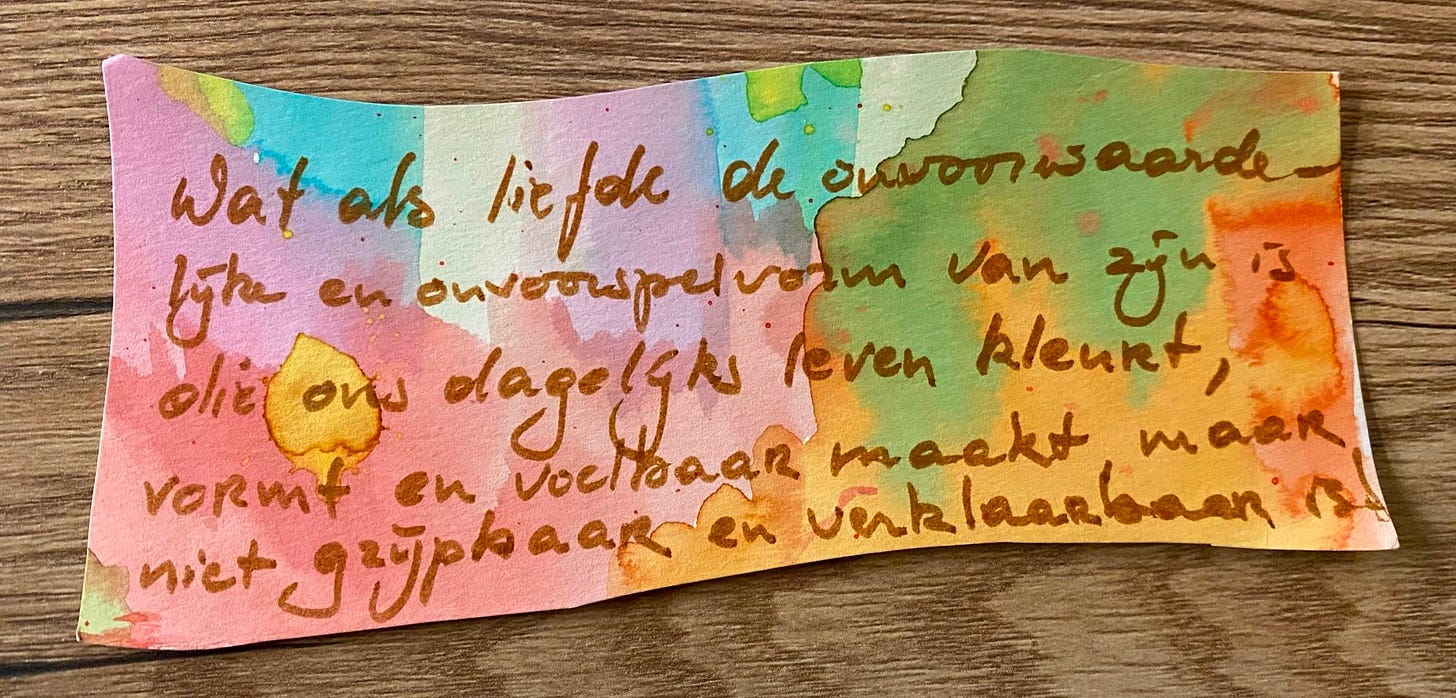 Wat als liefde de onvoorwaarde-
lijke en onvoorspelvorm van zijn is
die ons dagelijks leven kleurt,
vormt en voelbaar maakt, maar
niet grijpbaar en verklaarbaar is!